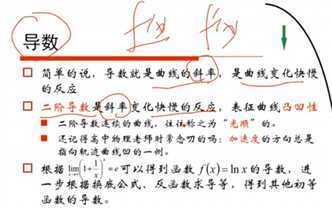 导数
f(x) f(x)
简单的说，导数就是曲线的斜率，是曲线变化快慢
的反应
二阶导数是斜率变化快慢的反应，表征曲线凸凹性
二阶导数连续的曲线，往往称之为“光顺”的。
还记得高中物理老师时常念叨的吗：加速度的方向总是
指向轨迹曲线凹的一侧。
根据 lim(1+1/x)^x=e 可以得到函数 f(x)=ln x 的导数，进
一步根据换底公式、反函数求导等，得到其他初等
函数的导数。